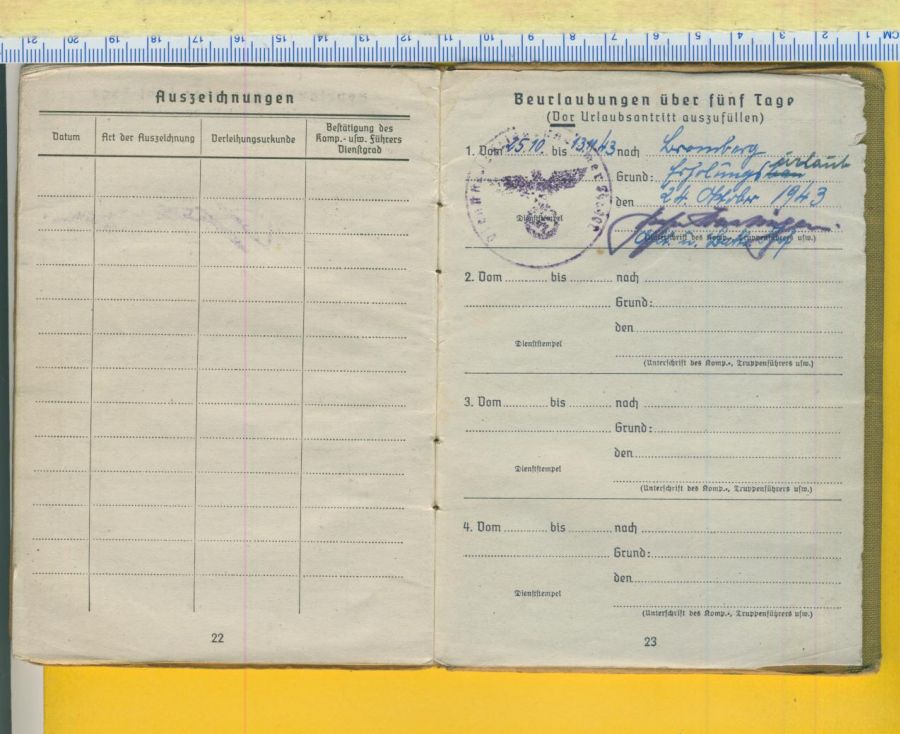 21 20 19 18 17 16 15 14 13 12 11 10 9 8 7 6 5 4 3 2 1 CM
Auszeichnungen
Datum Art der Auszeichnung Verleihungsurkunde Bestätigung des Komp.- usw. Führers Dienstgrad
22
Beurlaubungen über fünf Tage
(Vor Urlaubsantritt auszufüllen)
1. Vom 25.10. bis 13.11.43 nach Bromberg
Grund: Erholungsurlaub
den 24. Oktober 1943
Dienststempel
(Unterschrift des Komp.-, Truppenführers usw.)
2. Vom bis nach
Grund:
den
Dienststempel
(Unterschrift des Komp.-, Truppenführers usw.)
3. Vom bis nach
Grund:
den
Dienststempel
(Unterschrift des Komp.-, Truppenführers usw.)
4. Vom bis nach
Grund:
den
Dienststempel
(Unterschrift des Komp.-, Truppenführers usw.)
23